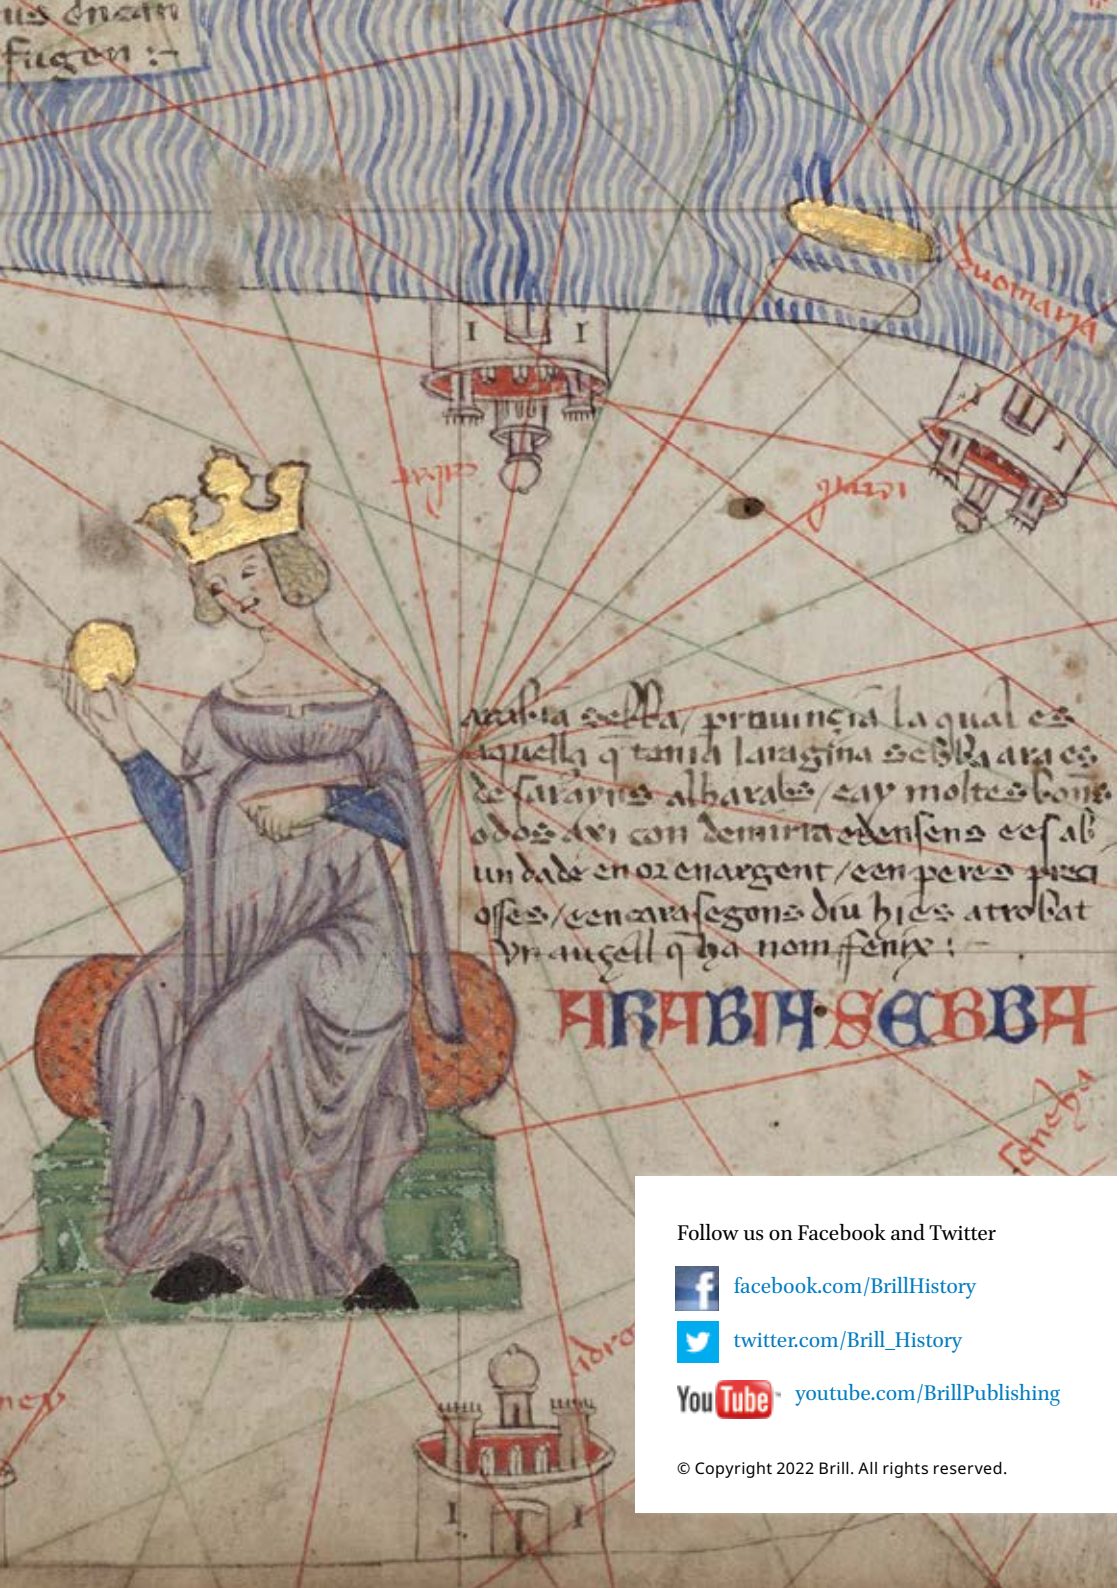 fugen :-
I I
I I
arabia sebba / prouinçia la qual es
aquella q̄ tenia laragina sebba ara es
de sarayns alharabs / eay moltes bons
odos axi con de mirra edensens e es ab
un dade en or en argent / e en peres preci
osses / e en cara segons diu hies atrobat
vn auçell q̄ ha nom ffenix : -
ARABIA·SEBBA
Follow us on Facebook and Twitter
f facebook.com/BrillHistory
twitter.com/Brill_History
YouTube™ youtube.com/BrillPublishing
© Copyright 2022 Brill. All rights reserved.
I I